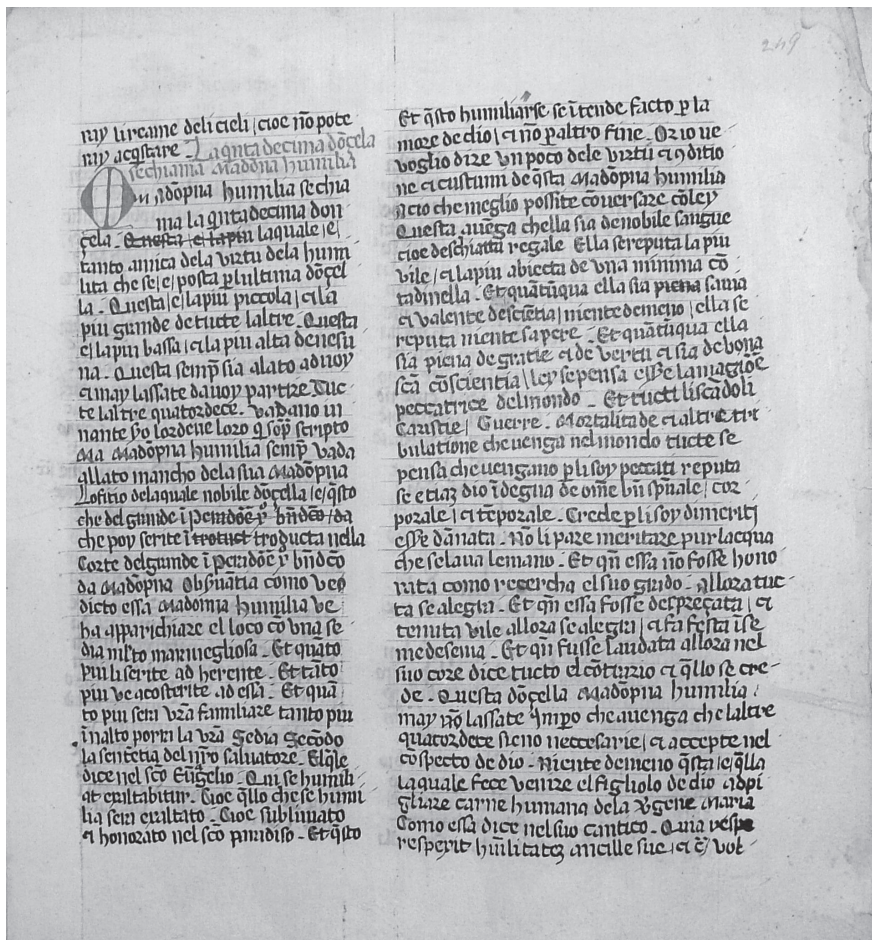 249
ray lireame deli cieli / cioe nō pote
ray acqstare - La qnta decima dōcela
se chiama Madōna humilia
Madōpna humilia se chia
ma la qntadecima don
çela - Questa / e / la piu la quale / e /
tanto amica dela virtu dela humi
lita che se / e / posta p lultima dōçel
la - Questa / e / la piu piccola / ci la
piu grande de tucte laltre - Questa
e / la piu bassa / ci la piu alta de nesu
na - Questa semp sia alato ad uoy
ci may lassate da uoy partire Tuc
te laltre quatordece - vadano in
nante lordene loro q sop scripto
Ma Madōpna humilia semp vada
allato mancho dela sua Madōpna
Lofitio dela quale nobile dōçella / e / qsto
che del grande īperadōe bñdcō / da
che poy serite ī troduct troducta nella
Corte del grande ī peridōe bñdcō
da Madōpna Obsuātia como ve
dicto essa Madonna humilia ve
ha apparichiare el loco cō vna se
dia mlto marauegliosa - Et quāto
piu li serite ad herente - Et tāto
piu ve acosterite ad essa - Et quā
to piu sera vrā familiare tanto piu
ī nalto porta la vrā sedia secōdo
la sentētia del nrō saluatore - Elqle
dice nel scō Euāgelio - Qui se humili
at exaltabitur - Cioe qllo che se humi
lia sera exaltato - Cioe sublimato
ci honorato nel scō paradiso - Et qsto
Et qsto humiliarse se ītende facto p la
more de dio / ci nō p altro fine - Or io ue
voglio dire vn poco dele virtu ci 9ditio
ne ci custumi de qsta Madōpna humilia
acio che meglio possite cōuersare cōley
Questa auēga chella sia de nobile sangue
cioe de schiatta regale - Ella se reputa la piu
vile / ci la piu abiecta de vna minima cō
tadinella - Et quātūqua ella sia piena sauia
ci valente de sciētia / niente de meno / ella se
reputa niente sapere - Et quātūqua ella
sia piena de gratie ci de vertu ci sia de bona
scā cōscientia \ ley se pensa esse la magiōe
peccatrice del mondo - Et tucti li scādoli
Caristie / Guerre - Mortalitade ci altre tri
bulatione che uenga nel mondo tucte se
pensa che uengano p li soy peccati reputa
se etiaz dio īdegna de ome bñ spūale / cor
porale / ci tēporale - Crede p li soy dimeriti
esse dānata - Nō li pare meritare pur lacqua
che se laua le mano - Et qñ essa nō fosse hono
rata como recercha el suo grado - allora tuc
ta se alegra - Et qñ essa fosse despreçata / ci
tenuta vile allora se alegra / ci fa festa īse
medesema - Et qñ fusse laudata allora nel
suo core dice tucto el cōtrario ci qllo se cre
de - Questa dōçella Madōpna humilia
may nō lassate Impo che auenga che laltre
quatordece sieno neccesarie / ci accepte nel
cōspecto de dio - Niente de meno qsta / e / qlla
la quale fece venire el figliolo de dio ad pi
gliare carne humana dela vgene Maria
Como essa dice nel suo cantico - Quia vespe
respexit huīlitatez ancille sue / ci